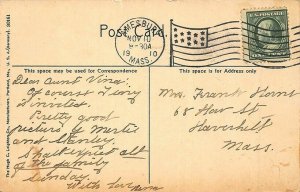 AMESBURY
NOV 10
8-30A
1910
MASS.
Post Card.
This space may be used for Correspondence
This space is for Address only
Dear Aunt Vina:
Of course I very
Pretty good
picture of Mertie
and Stanley
Shall expect all
of the family
Sunday.
With love
Mrs. Frank Hornt
65 How St
Haverhill
Mass.
The Hugh C. Leighton Co., Manufacturers, Portland, Me., U.S.A.